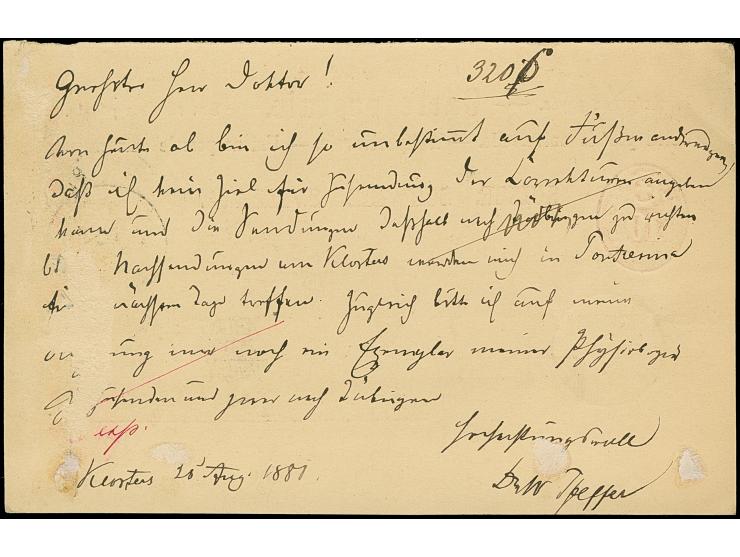 Geehrter Herr Doktor!
3200
Von heute ab bin ich so unbestimmt auf Fußwanderungen,
daß ich kein Ziel für Zusendung der Correkturen angeben
kann und die Sendungen deßhalb nach Tübingen zu richten
Nachsendungen von Klosters werden mich in Pontresina
nächsten Tage treffen. Zugleich bitte ich auf meine
ung nur noch ein Exemplar meiner Physiologie
zusenden und zwar nach Tübingen
Hochachtungsvoll
Dr W Pfeffer
Klosters 25 Aug. 1881.